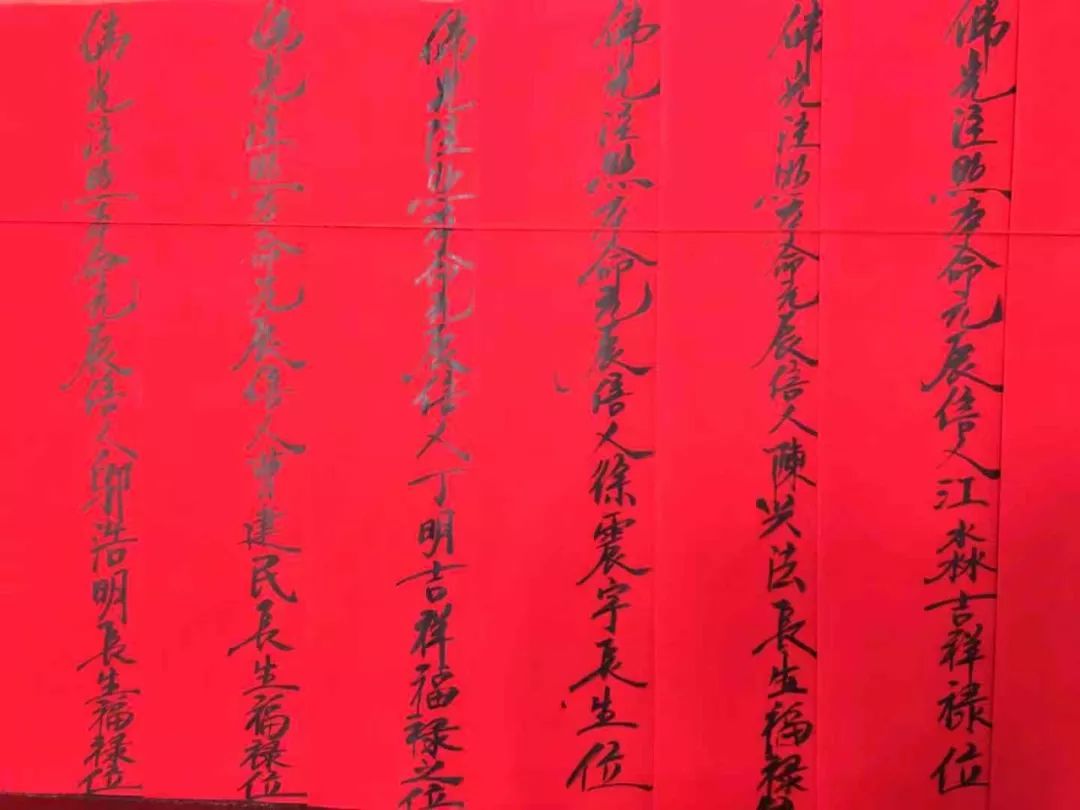 佛光注照本命元辰信人江淼吉祥禄位
佛光注照本命元辰信人陳兴法長生福禄位
佛光注照本命元辰信人徐震宇長生位
佛光注照本命元辰信人丁明吉祥福禄之位
佛光注照本命元辰信人曹建民長生福禄位
佛光注照本命元辰信人郭浩明長生福禄位